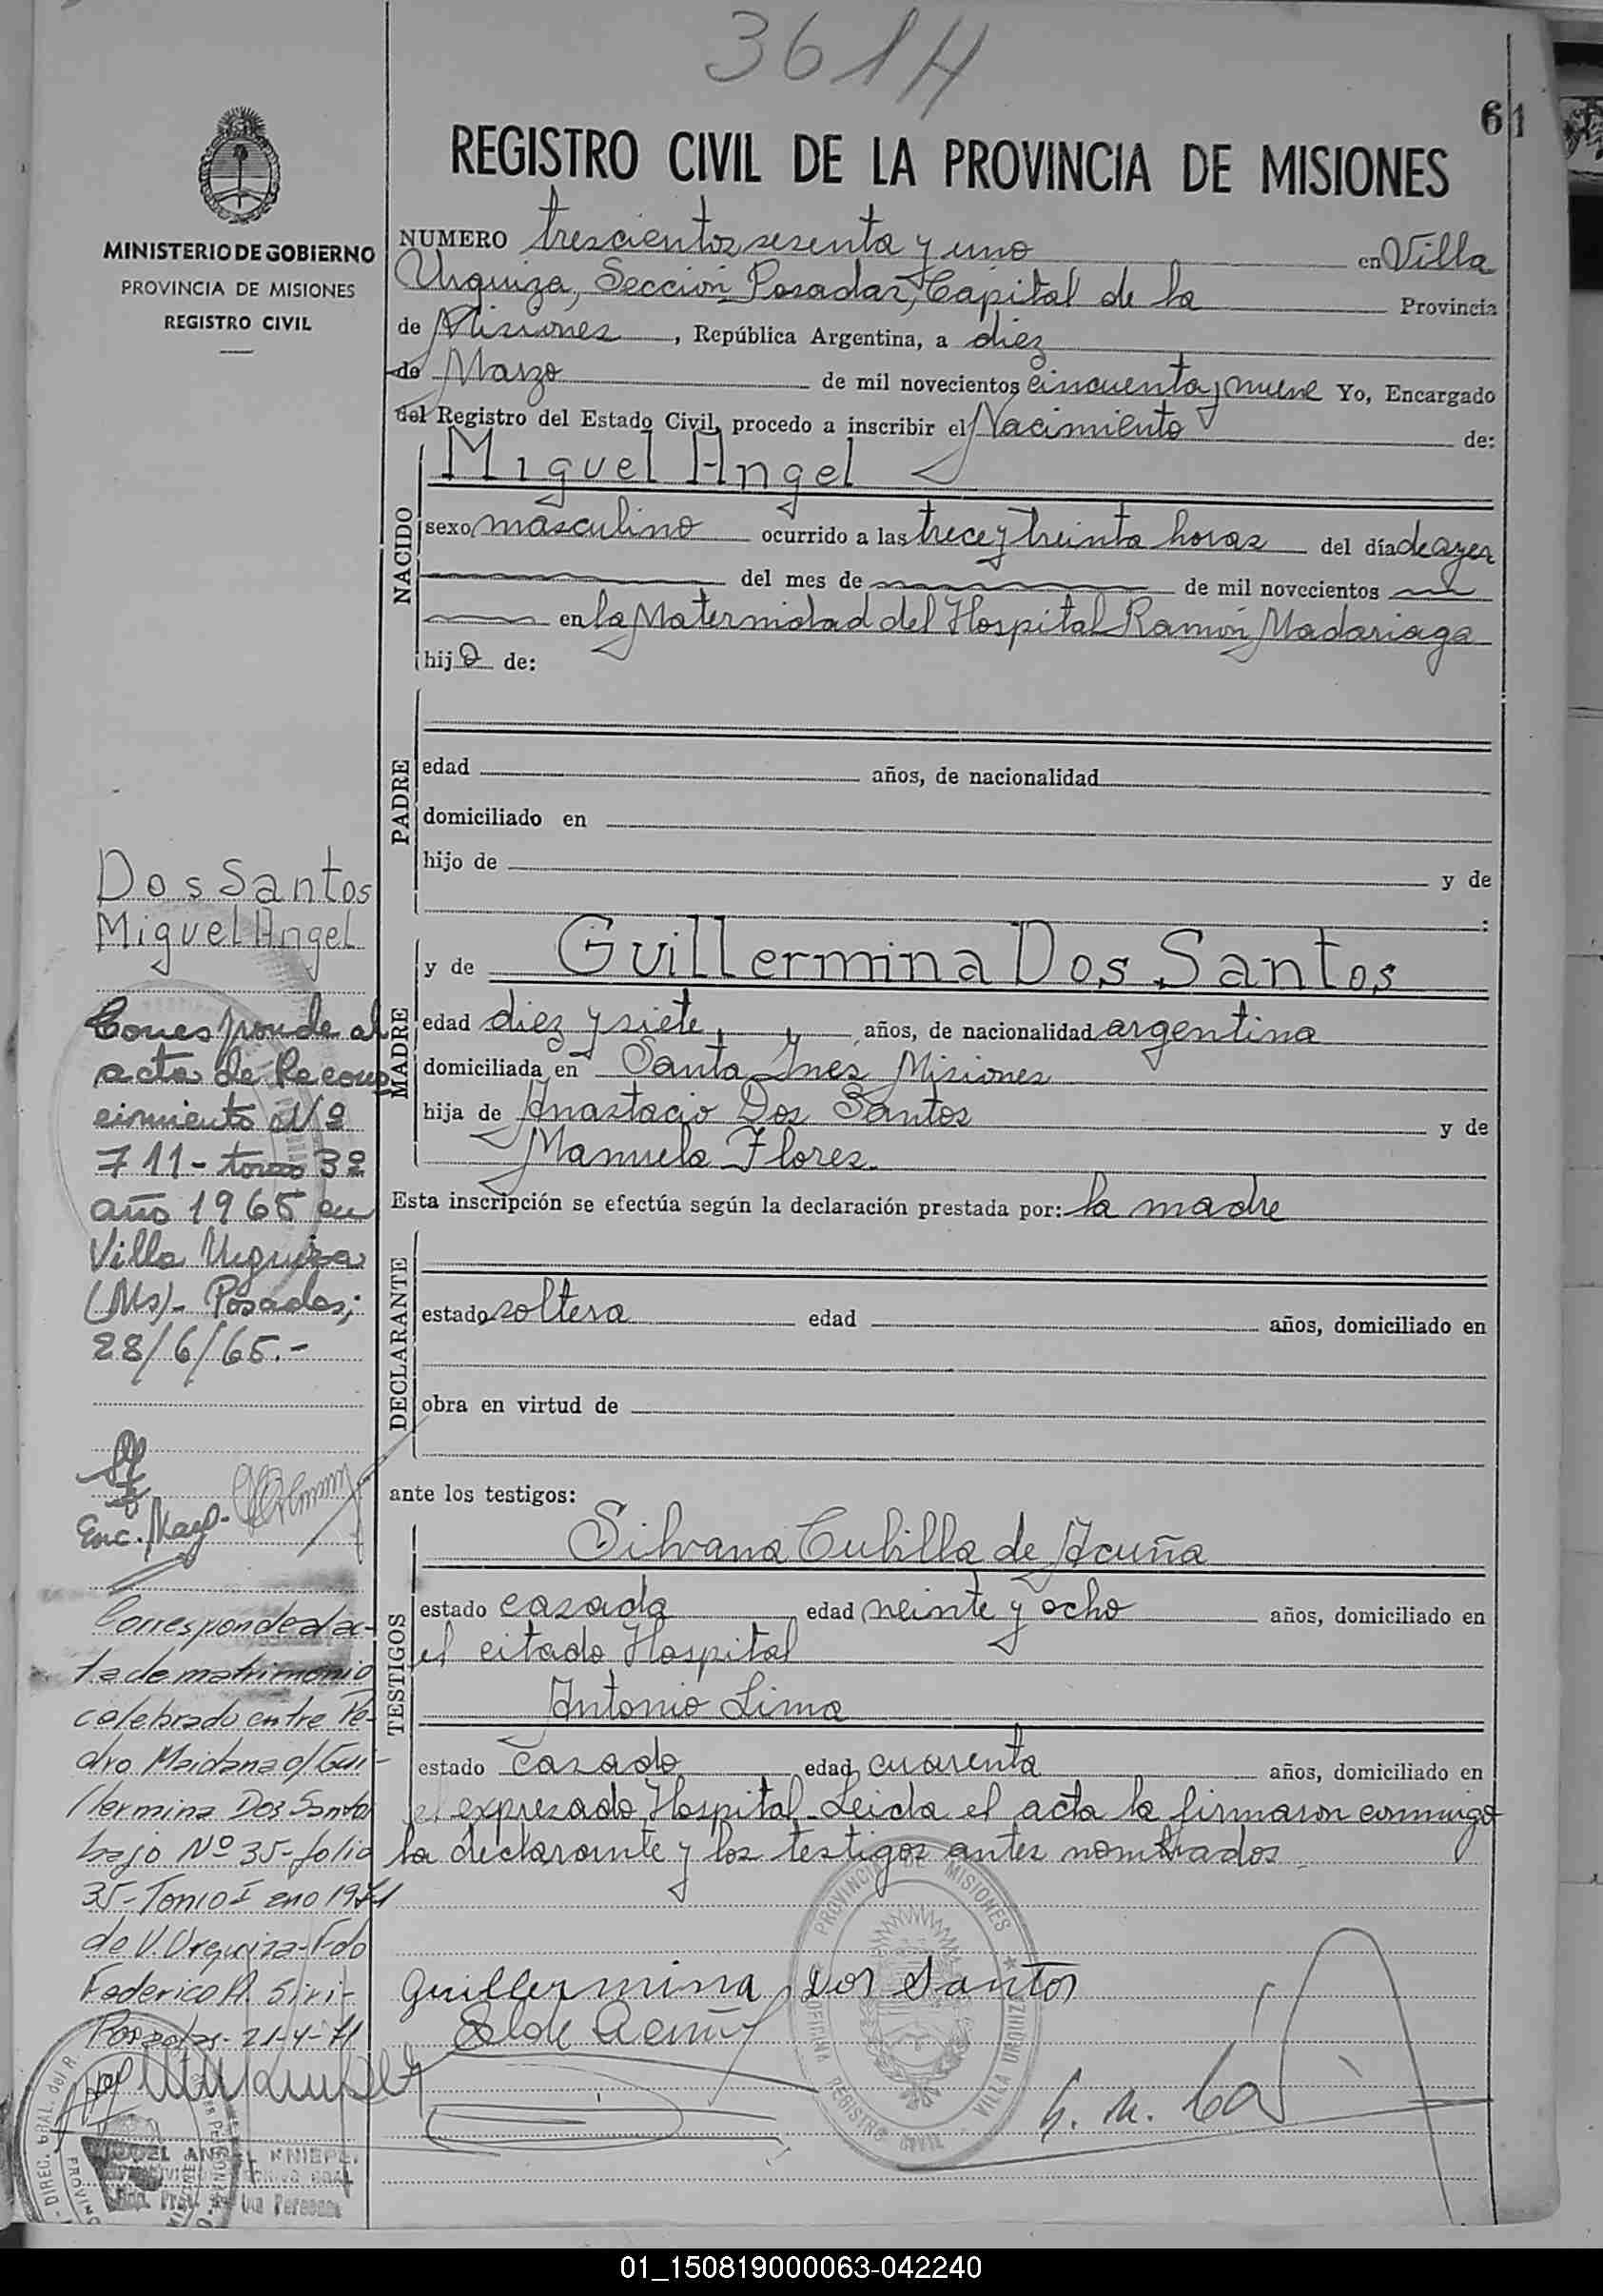 361 H
61
REGISTRO CIVIL DE LA PROVINCIA DE MISIONES
MINISTERIO DE GOBIERNO
PROVINCIA DE MISIONES
REGISTRO CIVIL
NUMERO trescientos sesenta y uno en Villa
Urquiza, Sección Posadas, Capital de la Provincia
de Misiones, República Argentina, a diez
de Marzo de mil novecientos cincuenta y nueve Yo, Encargado
del Registro del Estado Civil, procedo a inscribir el Nacimiento de:
NACIDO
Miguel Angel
sexo masculino ocurrido a las trece y treinta horas del día de ayer
del mes de de mil novecientos
en la Maternidad del Hospital Ramón Madariaga
hijo de:
PADRE
edad años, de nacionalidad
domiciliado en
hijo de y de
:
MADRE
y de Guillermina Dos Santos
edad diez y siete, años, de nacionalidad argentina
domiciliada en Santa Ines Misiones
hija de Anastacio Dos Santos y de
Manuela Flores.
Esta inscripción se efectúa según la declaración prestada por: la madre
DECLARANTE
estado soltera edad años, domiciliado en
obra en virtud de
ante los testigos:
TESTIGOS
Silvana Cubilla de Acuña
estado casada edad veinte y ocho años, domiciliado en
el citado Hospital
Antonio Lima
estado casado edad cuarenta años, domiciliado en
el expresado Hospital. Leida el acta la firmaron conmigo
la declarante y los testigos antes nombrados.
Guillermina Dos Santos
S C de Acuña
PROVINCIA DE MISIONES
OFICINA REGISTRO CIVIL - VILLA URQUIZA
Dos Santos
Miguel Angel
Corresponde al
acta de Recono
cimiento Nº
711 - tomo 3º
año 1965 en
Villa Urquiza
(Ms)- Posadas;
28/6/65.-
Enc. Mayl.
Corresponde al ac-
ta de matrimonio
celebrado entre Pe-
dro Maidana c/ Gui-
llermina Dos Santos
bajo Nº 35- folio
35- Tomo I año 1971
de V. Urquiza- Fdo
Federico A. Siri-
Posadas- 21-4-71
DIREC. GRAL. del R.
PROVINC
MIGUEL ANGEL KNIEPE
01_150819000063-042240